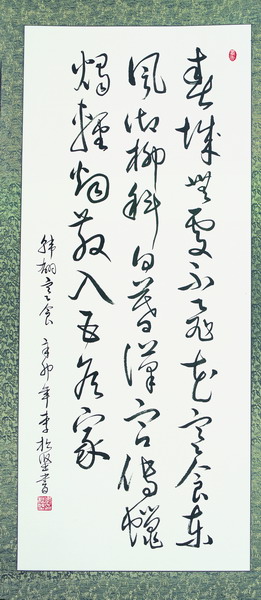 春城無處不飛花寒食東
風御柳斜日暮漢宮傳蠟
燭輕烟散入五侯家
韓翃寒食 辛卯年李松堅書